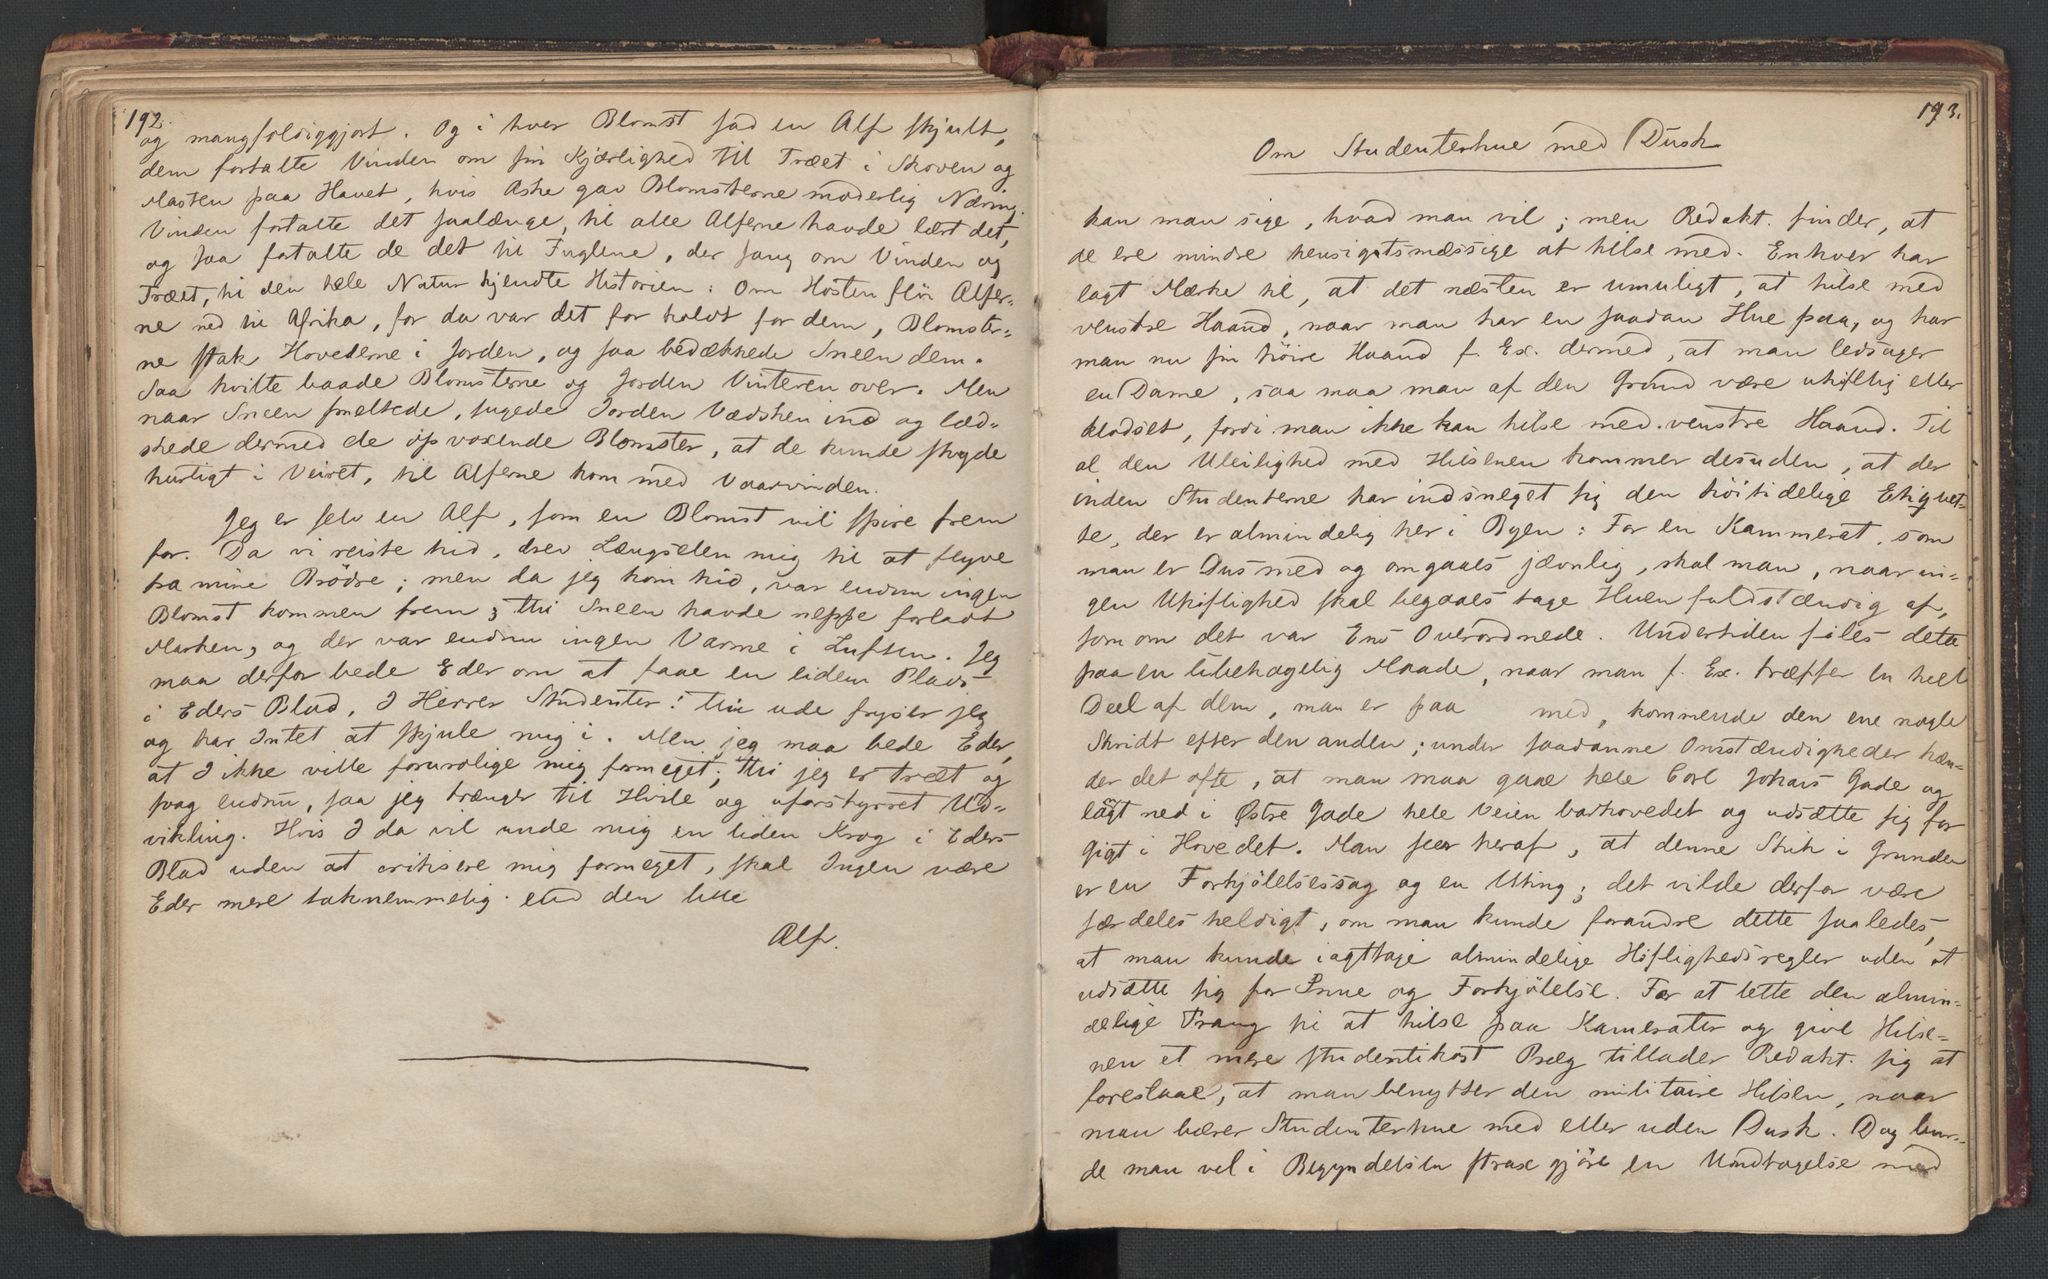 192.
og mangfoldiggjort. Og i hver Blomst sad en Alf skjult,
dem fortalte Vinden om sin Kjærlighed til Træet i Skoven og
Masten paa Havet, hvis Aske gav Blomsterne moderlig Næring.
Vinden fortalte det saalænge, til alle Alferne havde lært det,
og saa fatalte de det til Fuglene, der sang om Vinden og
Træet, til den hele Natur kjendte Historien: Om Høsten fløi Alfer-
ne ned til Afrika, for da var det for koldt for dem, Blomster-
ne stak Hovederne i Jorden, og saa bedækkede Sneen dem.
Saa hvilte baade Blomsterne og Jorden Vinteren over. Men
naar Sneen smeltede, sugede Jorden Vædsken ind og læd-
skede dermed de opvoxende Blomster, at de kunde skyde
hurtigt i Veiret, til Alferne kom med Vaarvinden.
Jeg er selv en Alf, som en Blomst vil spire frem
for. Da vi reiste hid, drev Længselen mig til at flyve
fra mine Brödre; men da jeg kom hid, var endnu ingen
Blomst kommen frem; thi Sneen havde neppe forladt
Marken, og der var endnu ingen Varme i Luften. Jeg
maa derfor bede Eder om at faae en liden Plads
i Eders Blad, I Herrer Studenter! thi ude fryser jeg
og har Intet at skjule mig i. Men jeg maa bede Eder,
at I ikke ville forurolige mig formeget; thi jeg er træt og
svag endnu, saa jeg trænger til Hvile og uforstyrret Ud-
vikling. Hvis I da vil unde mig en liden Krog i Eders
Blad uden at critisere mig formeget, skal Ingen være
Eder mere taknemmelig end den lille
Alf.
193.
Om Studenterhue med Dusk
kan man sige, hvad man vil; men Redakt. finder, at
de ere mindre hensigtsmæssige at hilse med. Enhver har
lagt Mærke til, at det næsten er umuligt, at hilse med
venstre Haand, naar man har en saadan Hue paa, og har
man nu sin høire Haand f. Ex. dermed, at man ledsager
en Dame, saa maa man af den Grund være uhøflig eller
klodset, fordi man ikke kan hilse med venstre Haand. Til
al den Uleilighed med Hilsenen kommer desuden, at der
inden Studenterne har indsneget sig den høitidelige Etiquet-
te, der er almindelig her i Byen: For en Kammerat, som
man er Dus med og omgaaes jævnlig, skal man, naar in-
gen Uhøflighed skal begaaes tage Huen fuldstændig af,
som om det var Ens Overordnede. Undertiden føles dette
paa en ubehagelig Maade, naar man f. Ex. træffer en heel
Deel af dem, man er paa med, kommende den ene nogle
Skridt efter den anden; under saadanne Omstændigheder hæn-
der det ofte, at man maa gaae hele Carl Johans Gade og
langt ned i Østre Gade hele Veien barhovedet og udsætte sig for
Gigt i Hovedet. Man seer heraf, at denne Skik i Grunden
er en Forkjölelsessag og en Uting; det vilde derfor være
særdeles heldigt, om man kunde forandre dette saaledes,
at man kunde iagttage almindelige Høflighedsregler uden at
udsætte sig for Snue og Forkjölelse. For at lette den almin-
delige Trang til at hilse paa Kamerater og give Hilse-
nen et mere studentikost Præg tillader Redakt. sig at
foreslaae, at man benytter den militaire Hilsen, naar
man bærer Studenterhue med eller uden Dusk. Dog bur-
de man vel i Begyndelsen strax gjöre en Undtagelse med